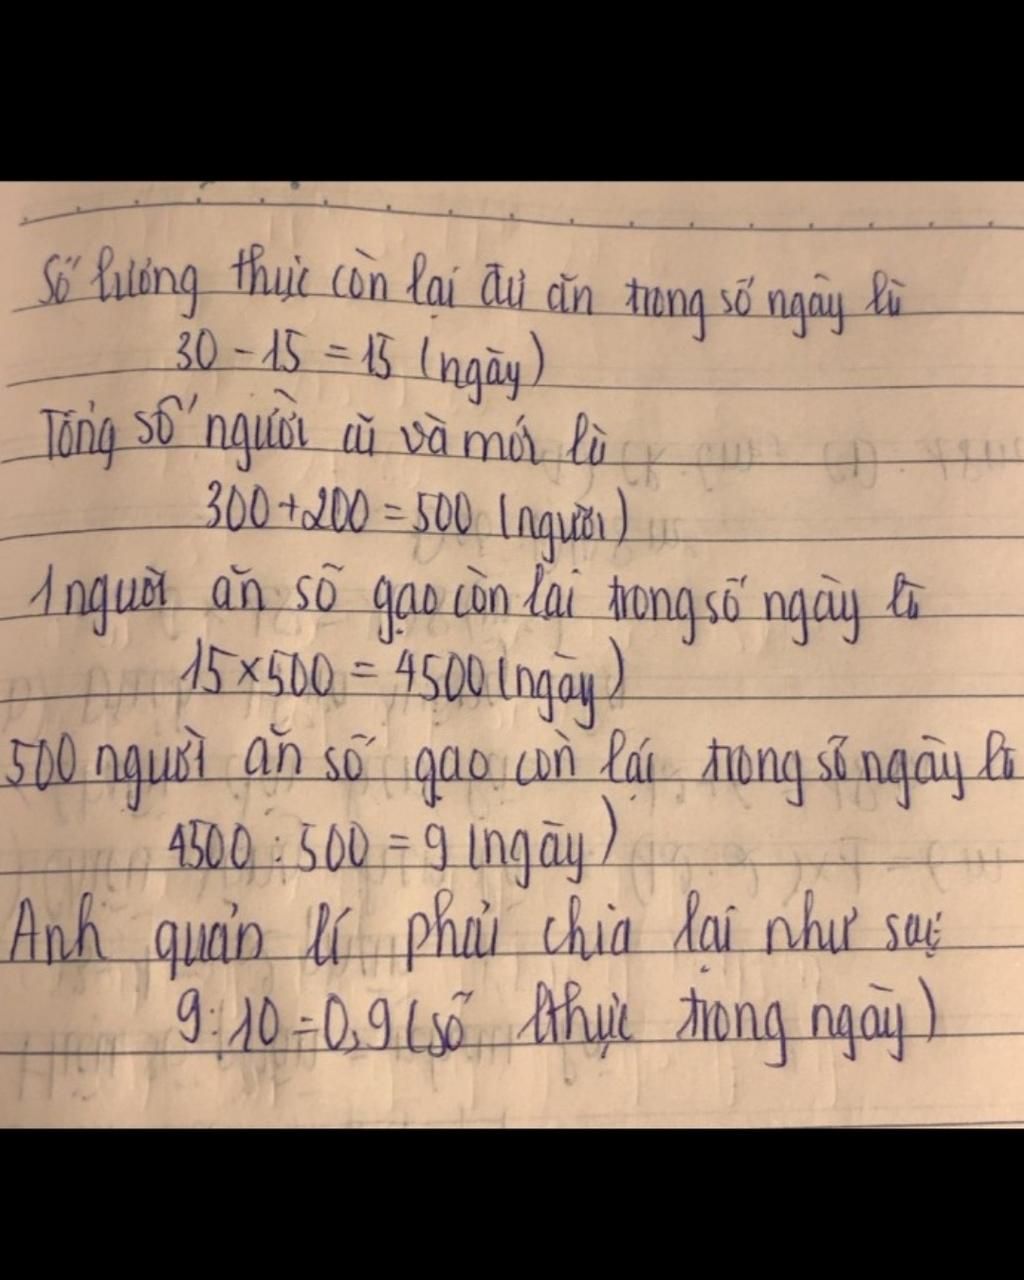 Số lương thực còn lại đủ ăn trong số ngày là
30 - 15 = 15 (ngày)
Tổng số người cũ và mới là
300 + 200 = 500 (người)
1 người ăn số gạo còn lại trong số ngày là
15 × 500 = 4500 (ngày)
500 người ăn số gạo còn lại trong số ngày là
4500 : 500 = 9 (ngày)
Anh quản lí phải chia lại như sau:
9 : 10 = 0,9 (số thực trong ngày)